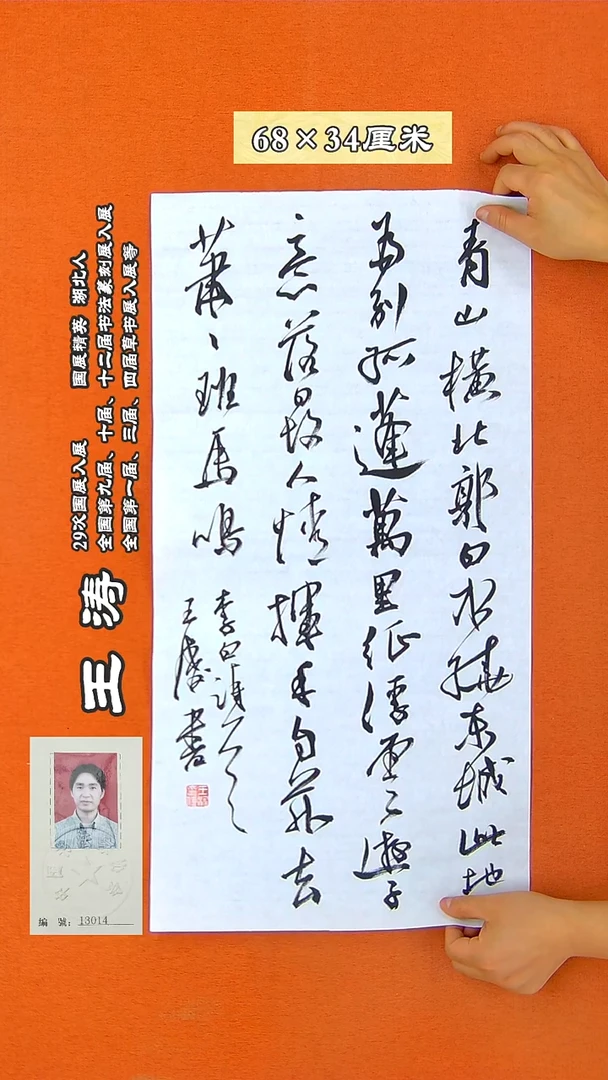 68×34厘米
青山橫北郭白水繞东城此地
為别孤蓬萬里征浮雲遊子
意落日故人情揮手自茲去
蕭〻班馬鳴
李白诗
王濤書
29次国展入展 国展精英 湖北人
全国第九届、十届、十二届书法篆刻展入展
全国第一届、三届、四届草书展入展等
王 涛
編 號：13014